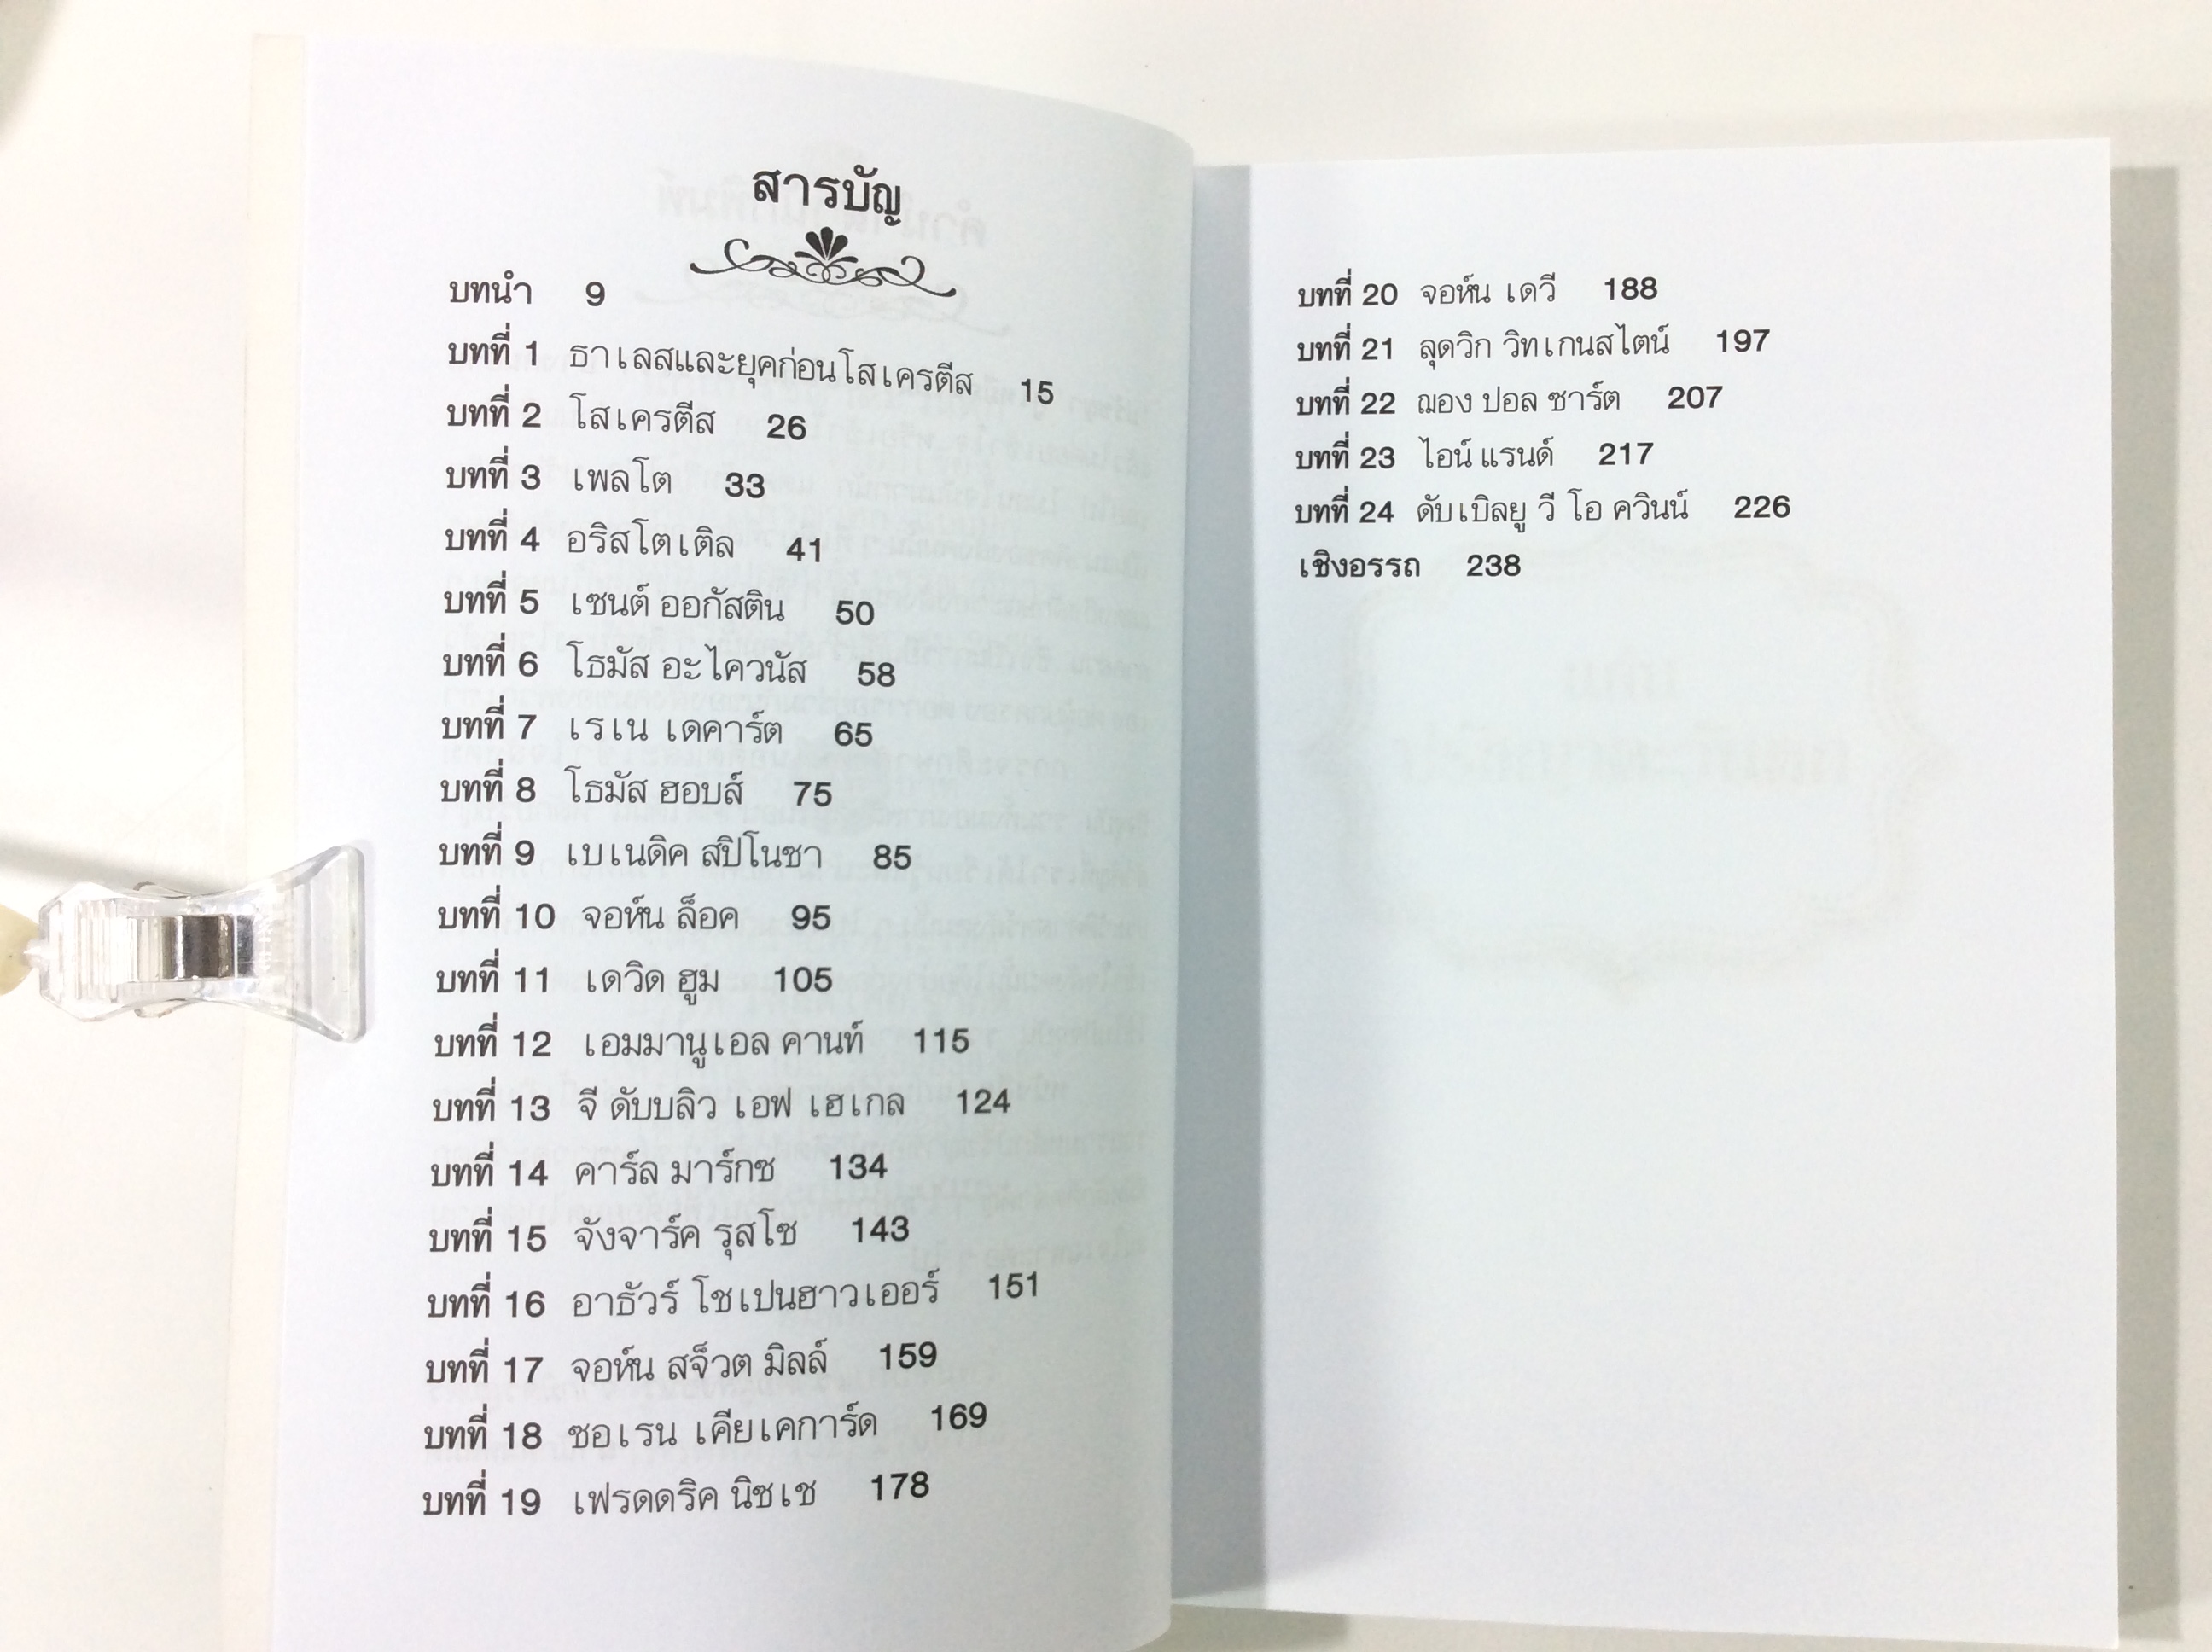 สารบัญ
บทนำ 9
บทที่ 1 ธาเลสและยุคก่อนโสเครตีส 15
บทที่ 2 โสเครตีส 26
บทที่ 3 เพลโต 33
บทที่ 4 อริสโตเติล 41
บทที่ 5 เซนต์ ออกัสติน 50
บทที่ 6 โธมัส อะไควนัส 58
บทที่ 7 เรเน เดคาร์ต 65
บทที่ 8 โธมัส ฮอบส์ 75
บทที่ 9 เบเนดิค สปิโนซา 85
บทที่ 10 จอห์น ล็อค 95
บทที่ 11 เดวิด ฮูม 105
บทที่ 12 เอมมานูเอล คานท์ 115
บทที่ 13 จี ดับบลิว เอฟ เฮเกล 124
บทที่ 14 คาร์ล มาร์กซ 134
บทที่ 15 จังจาร์ค รุสโซ 143
บทที่ 16 อาธัวร์ โชเปนฮาวเออร์ 151
บทที่ 17 จอห์น สจ็วต มิลล์ 159
บทที่ 18 ซอเรน เคียเคการ์ด 169
บทที่ 19 เฟรดดริค นิซเช 178
บทที่ 20 จอห์น เดวี 188
บทที่ 21 ลุดวิก วิทเกนสไตน์ 197
บทที่ 22 ฌอง ปอล ซาร์ต 207
บทที่ 23 ไอน์ แรนด์ 217
บทที่ 24 ดับเบิลยู วี โอ ควินน์ 226
เชิงอรรถ 238